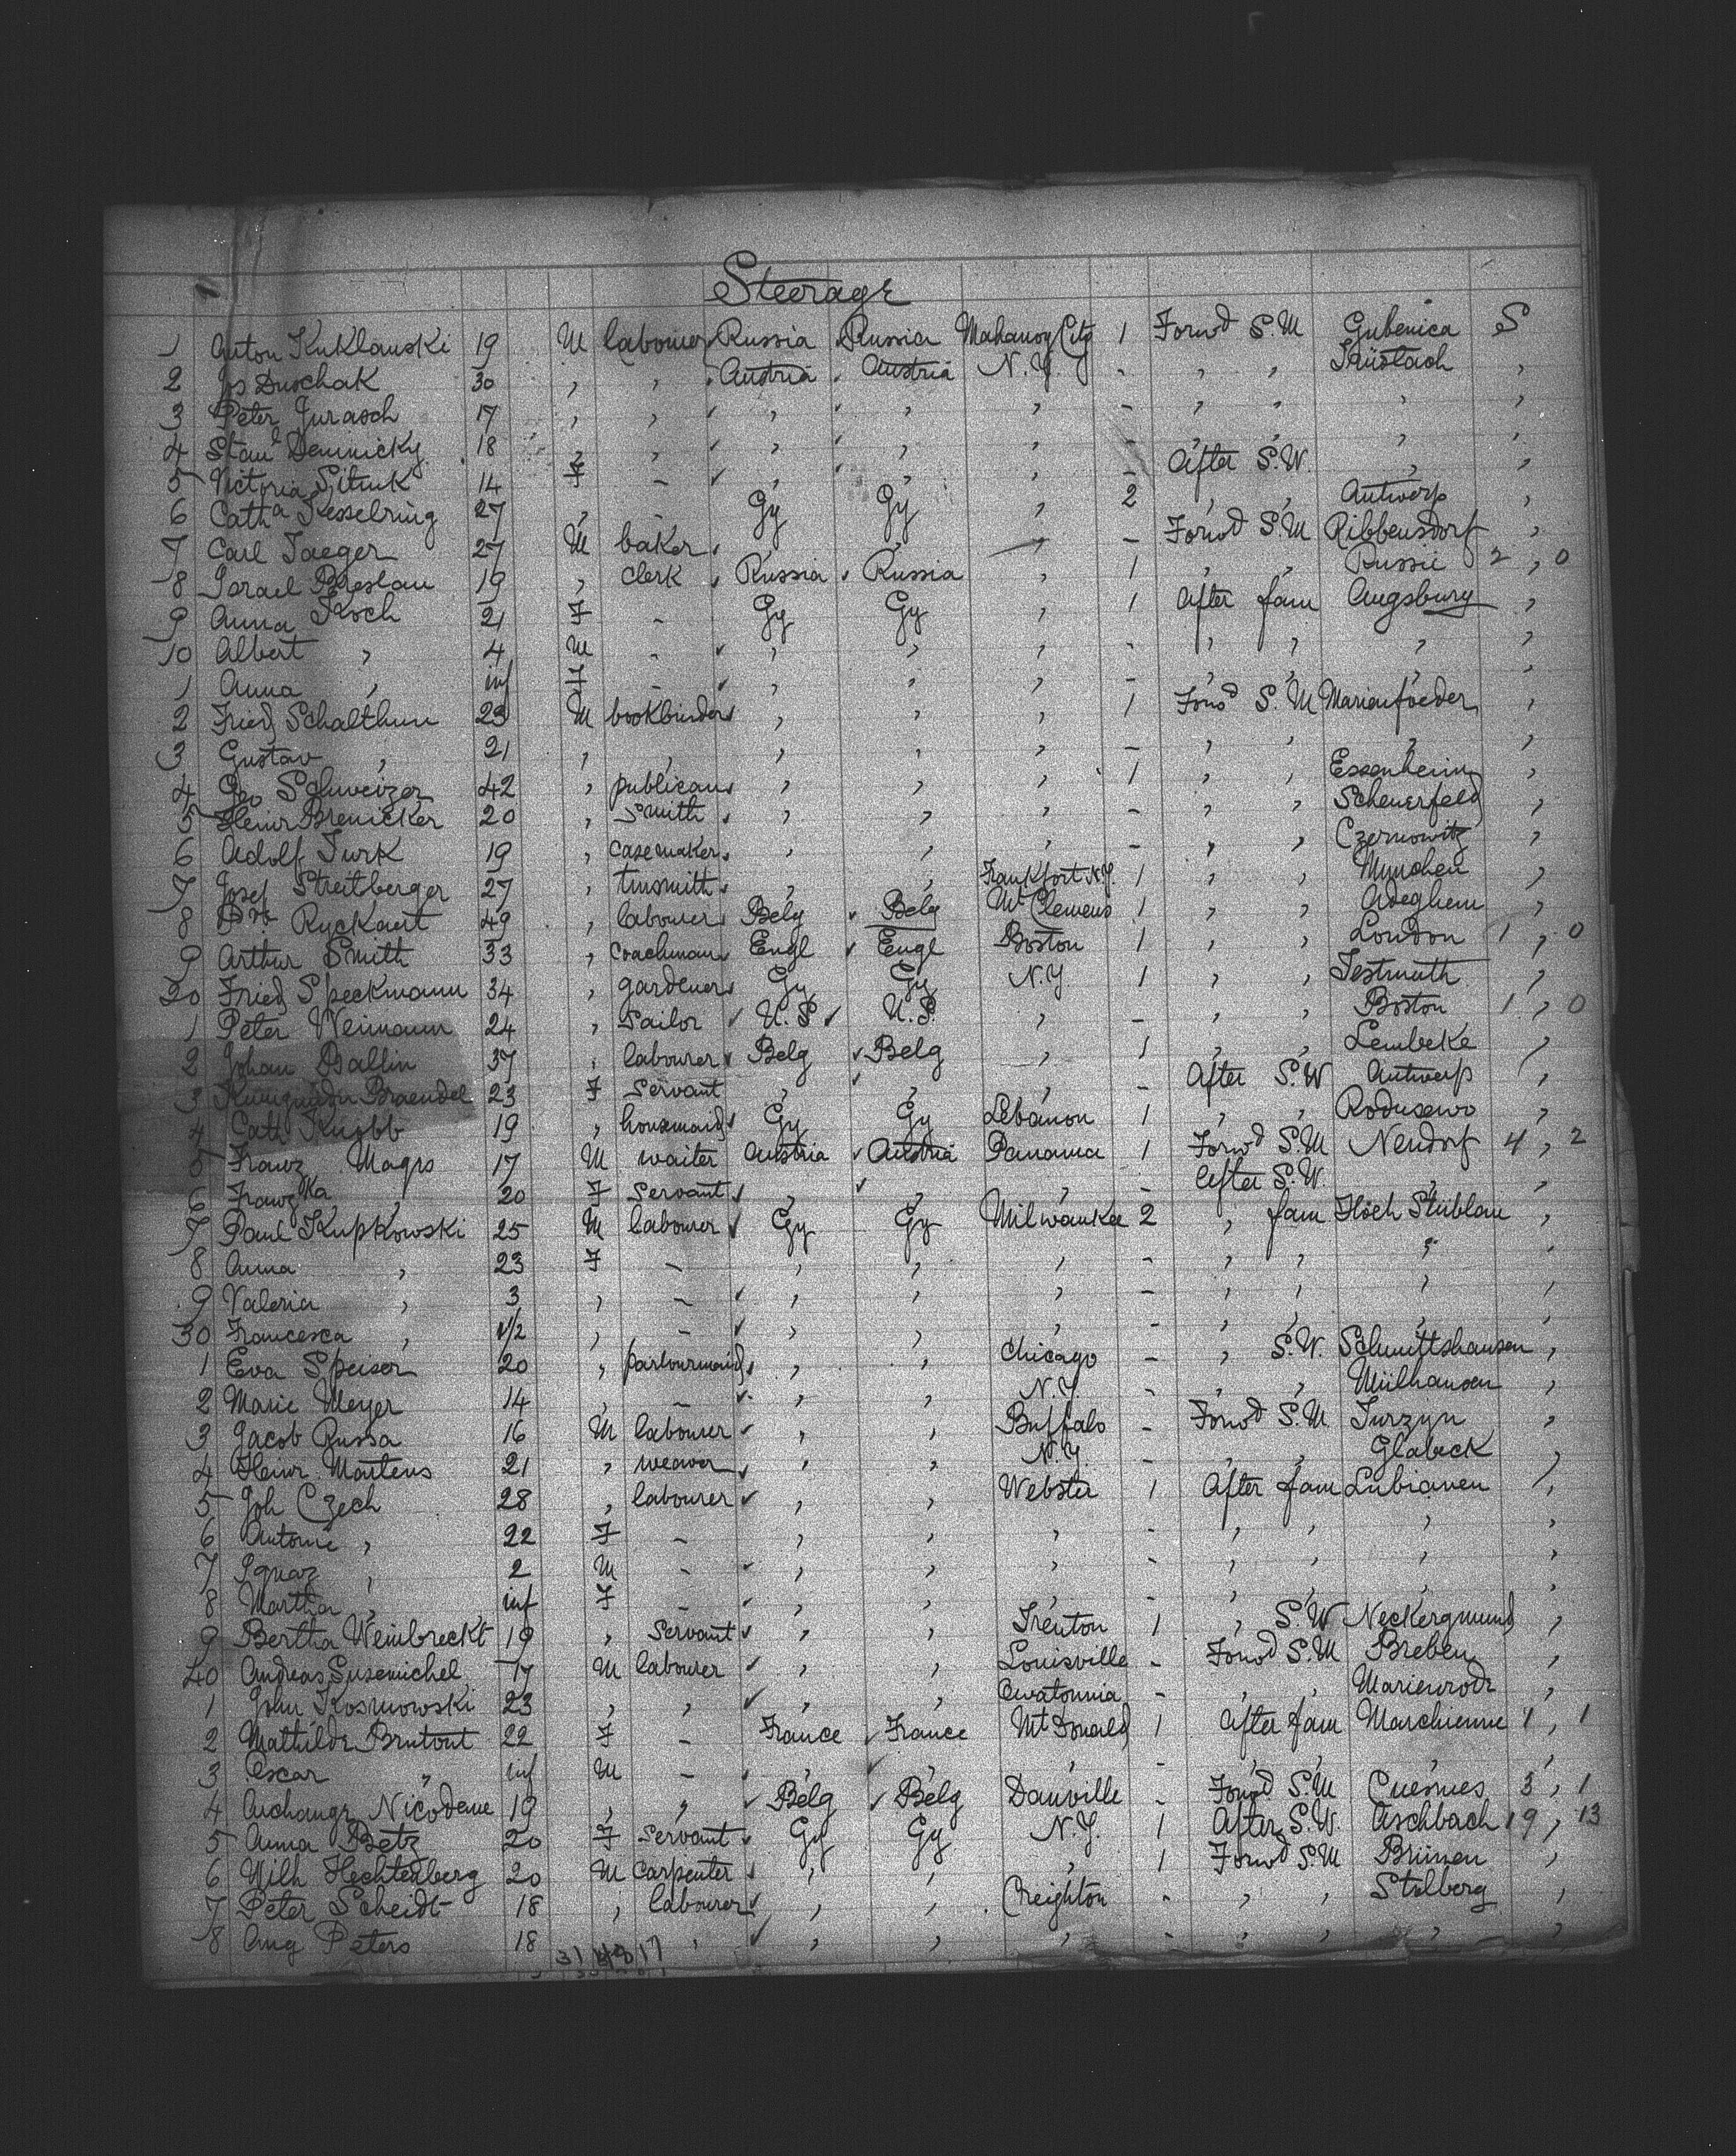 Steerage
1 Anton Kuklauski 19 M labourer Russia Russia Mahanoy City 1 Forwd S.M Gubenica S
2 Jos Duschak 30 , , Austria Austria N.Y. - , , Trüstach ,
3 Peter Jurasch 17 , , , , , - , , , ,
4 Stan Demnicky 18 , , , , , - , , , ,
5 Victoria Situk 14 F - , , , - After S.W. , ,
6 Catha Kesselring 27 , - Gy Gy , 2 , , Antwerp ,
7 Carl Jaeger 27 M baker , , , - Forwd S.M Ribbensdorf ,
8 Israel Breslau 19 , clerk Russia Russia , 1 , , Russie 2 , 0
9 Anna Koch 21 F - Gy Gy , 1 After fam Augsburg ,
10 Albert , 4 M - , , , - , , , ,
1 Anna , inf F - , , , - , , , ,
2 Fried Schalthun 23 M bookbinder , , , 1 Forwd S.M Marienfoeder ,
3 Gustav , 21 , , , , , - , , , ,
4 Geo Schweizer 42 , publican , , , 1 , , Essenheim ,
5 Heinr Brenicker 20 , smith , , , - , , Scheuerfeld ,
6 Adolf Turk 19 , casemaker , , , - , , Czernowitz ,
7 Josef Streitberger 27 , tinsmith , , Frankfort N.Y. 1 , , Munchen ,
8 Ryckaert 49 , labourer Belg Belg Mt Clemens 1 , , Adeghem ,
9 Arthur Smith 33 , coachman Engl Engl Boston 1 , , London 1 , 0
20 Fried Speckmann 34 , gardener Gy Gy N.Y. 1 , , Testmuth ,
1 Peter Weimann 24 , sailor U.S. U.S. , - , , Boston 1 , 0
2 Johan Dallin 37 , labourer Belg Belg , 1 , , Lembeke ,
3 Kunigunda Braendel 23 F servant , , , - After S.W Antwerp ,
4 Cath Knobb 19 , housemaid Gy Gy Lebanon 1 , , Rodusewo ,
5 Franz Magrs 17 M waiter Austria Austria Panama 1 Forwd S.M Neudorf 4 , 2
6 Franzka , 20 F servant , , , - After S.W. , ,
7 Paul Kupkowski 25 M labourer Gy Gy Milwaukee 2 , fam Hoch Stüblau ,
8 Anna , 23 F - , , , - , , , ,
9 Valeria , 3 , - , , , - , , , ,
30 Francesca , 1/2 , - , , , - , , , ,
1 Eva Speiser 20 , parlourmaid , , Chicago - , S.W. Schmittshausen ,
2 Marie Meyer 14 , - , , N.Y. - , , Mülhausen ,
3 Jacob Russa 16 M labourer , , Buffalo - Forwd S.M Turzyn ,
4 Heinr. Martens 21 , weaver , , N.Y. - , , Glabeck ,
5 Joh Czech 28 , labourer , , Webster 1 After fam Lubianen ,
6 Antonie , 22 F - , , , - , , , ,
7 Ignaz , 2 M - , , , - , , , ,
8 Martha , inf F - , , , - , , , ,
9 Bertha Weinbreckt 19 , servant , , Trenton 1 , S.W Neckergmund ,
40 Andreas Susemichel 17 M labourer , , Louisville - Forwd S.M Breben ,
1 John Kosmowski 23 , , , , Owatonnia - , , Marienrode ,
2 Mathilde Brutout 22 F - France France Mt Donald 1 After fam Marchienne 1 , 1
3 Oscar " inf M - , , , - , , , ,
4 Archange Nicodeme 19 , , Belg Belg Danville - Forwd S.M Cuesmes 3 , 1
5 Anna Betz 20 F servant Gy Gy N.Y. 1 After S.W. Aschbach 19 , 13
6 Wilh Hechtenberg 20 M carpenter , , , 1 Forwd S.M Brünen ,
7 Peter Scheidt 18 , labourer , , Creighton - , , Stolberg ,
8 Aug Peters 18 , , , , , - , , , ,
31 17